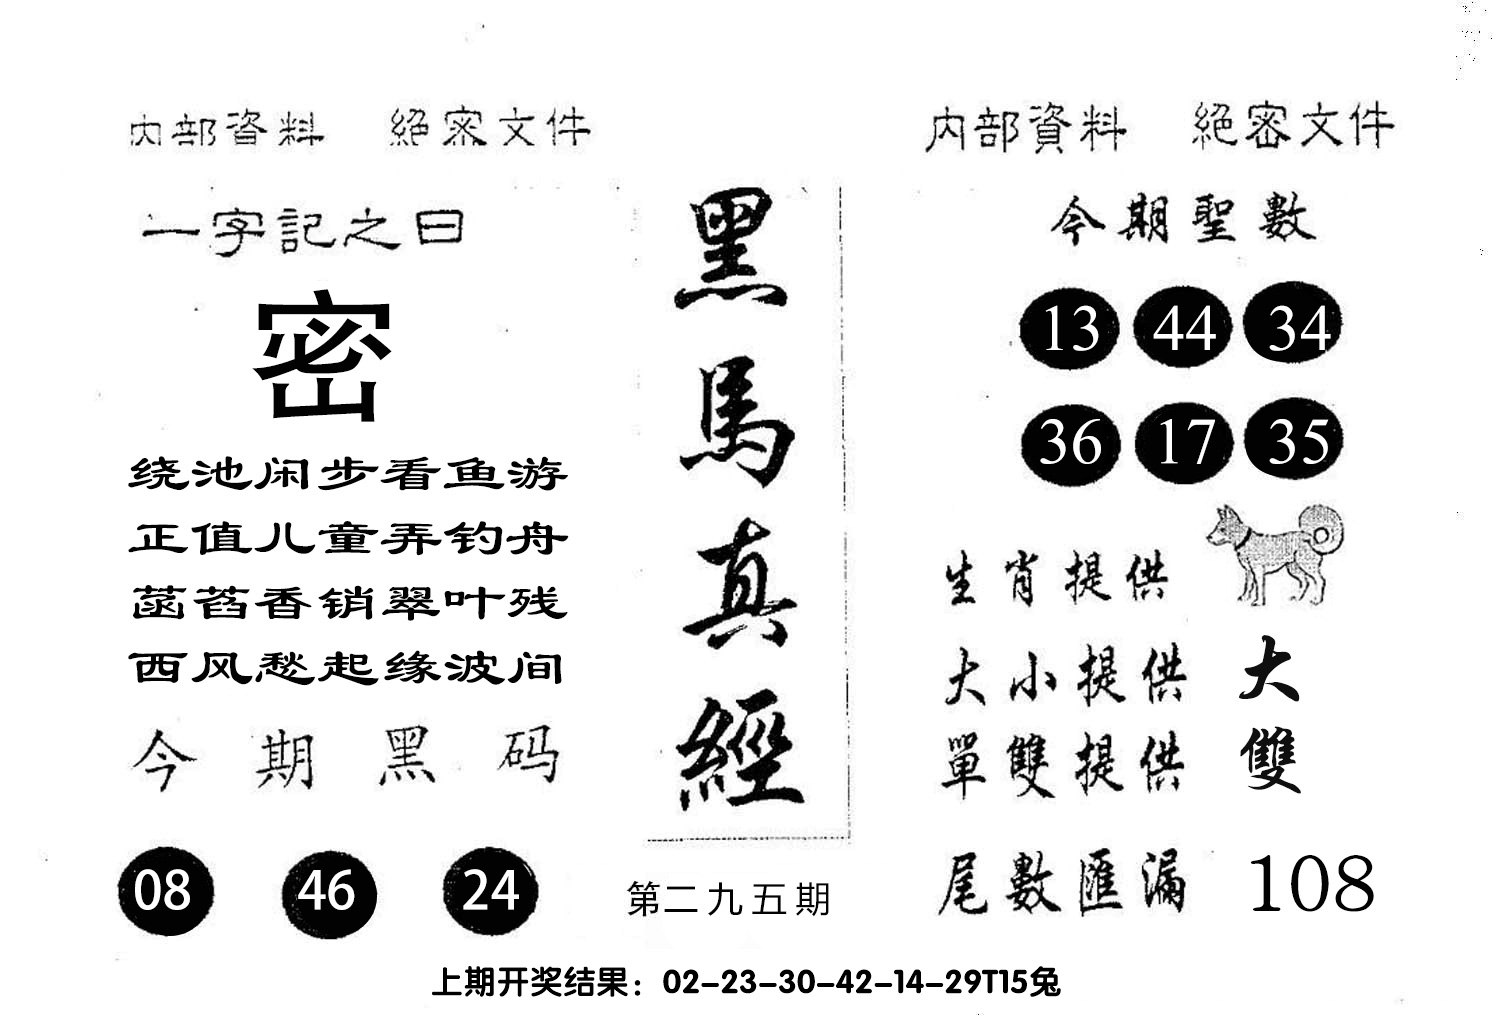 内部資料 絕密文件
一字記之曰
密
绕池闲步看鱼游
正值儿童弄钓舟
菡萏香销翠叶残
西风愁起缘波间
今期黑码
08 46 24
黑馬真經
第二九五期
内部資料 絕密文件
今期聖數
13 44 34
36 17 35
生肖提供
大小提供 大
單雙提供 雙
尾數匯漏 108
上期开奖结果：02-23-30-42-14-29T15兔